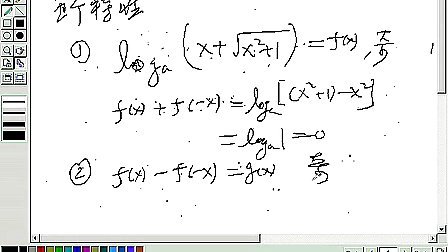 个特性
① logₐ(x+√(x²+1)) = f(x), 奇
f(x) + f(-x) = logₐ[(x²+1)-x²]
= logₐ1 = 0
② f(x) - f(-x) = g(x) 奇